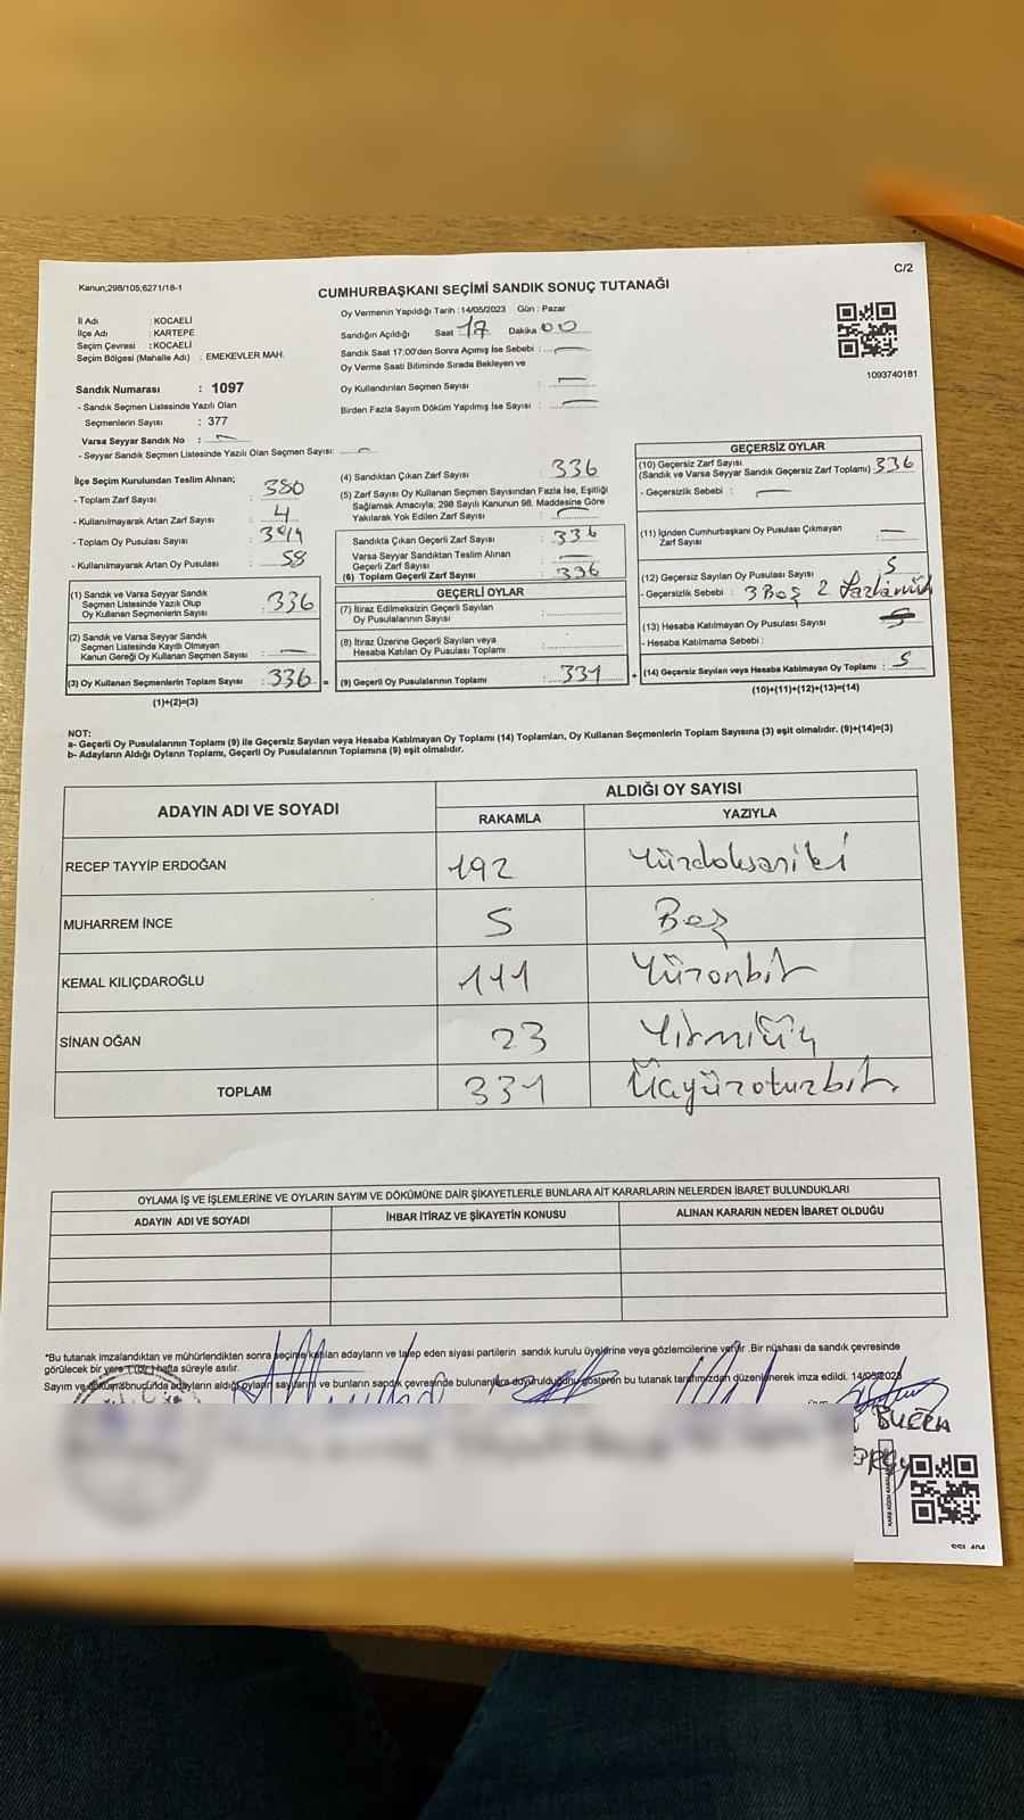 Kanun;298/105,6271/18-1
C/2
CUMHURBAŞKANI SEÇİMİ SANDIK SONUÇ TUTANAĞI
İl Adı : KOCAELİ
İlçe Adı : KARTEPE
Seçim Çevresi : KOCAELİ
Seçim Bölgesi (Mahalle Adı) : EMEKEVLER MAH.
Sandık Numarası : 1097
- Sandık Seçmen Listesinde Yazılı Olan
Seçmenlerin Sayısı : 377
Varsa Seyyar Sandık No : -
- Seyyar Sandık Seçmen Listesinde Yazılı Olan Seçmen Sayısı: -
Oy Vermenin Yapıldığı Tarih : 14/05/2023 Gün : Pazar
Sandığın Açıldığı Saat 17 Dakika 00
Sandık Saat 17:00'den Sonra Açılmış İse Sebebi : -
Oy Verme Saati Bitiminde Sırada Bekleyen ve
Oy Kullandırılan Seçmen Sayısı : -
Birden Fazla Sayım Döküm Yapılmış İse Sayısı : -
1093740181
İlçe Seçim Kurulundan Teslim Alınan;
- Toplam Zarf Sayısı : 380
- Kullanılmayarak Artan Zarf Sayısı : 4
- Toplam Oy Pusulası Sayısı :
- Kullanılmayarak Artan Oy Pusulası : 58
(1) Sandık ve Varsa Seyyar Sandık
Seçmen Listesinde Yazılı Olup
Oy Kullanan Seçmenlerin Sayısı : 336
(2) Sandık ve Varsa Seyyar Sandık
Seçmen Listesinde Kayıtlı Olmayan
Kanun Gereği Oy Kullanan Seçmen Sayısı : -
(3) Oy Kullanan Seçmenlerin Toplam Sayısı : 336 =
(1)+(2)=(3)
(4) Sandıktan Çıkan Zarf Sayısı : 336
(5) Zarf Sayısı Oy Kullanan Seçmen Sayısından Fazla İse, Eşitliği
Sağlamak Amacıyla; 298 Sayılı Kanunun 98. Maddesine Göre
Yakılarak Yok Edilen Zarf Sayısı : -
Sandıkta Çıkan Geçerli Zarf Sayısı : 336
Varsa Seyyar Sandıktan Teslim Alınan
Geçerli Zarf Sayısı : -
(6) Toplam Geçerli Zarf Sayısı : 336
GEÇERLİ OYLAR
(7) İtiraz Edilmeksizin Geçerli Sayılan
Oy Pusulalarının Sayısı :
(8) İtiraz Üzerine Geçerli Sayılan veya
Hesaba Katılan Oy Pusulası Toplamı :
(9) Geçerli Oy Pusulalarının Toplamı : 331 +
GEÇERSİZ OYLAR
(10) Geçersiz Zarf Sayısı
(Sandık ve Varsa Seyyar Sandık Geçersiz Zarf Toplamı) 336
- Geçersizlik Sebebi : -
(11) İçinden Cumhurbaşkanı Oy Pusulası Çıkmayan
Zarf Sayısı : -
(12) Geçersiz Sayılan Oy Pusulası Sayısı : 5
- Geçersizlik Sebebi : 3 Boş 2
(13) Hesaba Katılmayan Oy Pusulası Sayısı :
- Hesaba Katılmama Sebebi :
(14) Geçersiz Sayılan veya Hesaba Katılmayan Oy Toplamı : 5
(10)+(11)+(12)+(13)=(14)
NOT:
a- Geçerli Oy Pusulalarının Toplamı (9) ile Geçersiz Sayılan veya Hesaba Katılmayan Oy Toplamı (14) Toplamları, Oy Kullanan Seçmenlerin Toplam Sayısına (3) eşit olmalıdır. (9)+(14)=(3)
b- Adayların Aldığı Oyların Toplamı, Geçerli Oy Pusulalarının Toplamına (9) eşit olmalıdır.
ADAYIN ADI VE SOYADI
ALDIĞI OY SAYISI
RAKAMLA YAZIYLA
RECEP TAYYİP ERDOĞAN 192 Yüzdoksaniki
MUHARREM İNCE 5 Beş
KEMAL KILIÇDAROĞLU 111 Yüzonbir
SİNAN OĞAN 23 Yirmiüç
TOPLAM 331 Üçyüzotuzbir
OYLAMA İŞ VE İŞLEMLERİNE VE OYLARIN SAYIM VE DÖKÜMÜNE DAİR ŞİKAYETLERLE BUNLARA AİT KARARLARIN NELERDEN İBARET BULUNDUKLARI
ADAYIN ADI VE SOYADI İHBAR İTİRAZ VE ŞİKAYETİN KONUSU ALINAN KARARIN NEDEN İBARET OLDUĞU
*Bu tutanak imzalandıktan ve mühürlendikten sonra seçime katılan adayların ve talep eden siyasi partilerin sandık kurulu üyelerine veya gözlemcilerine verilir .Bir nüshası da sandık çevresinde
görülecek bir yere 1 (bir) hafta süreyle asılır.
Sayım ve döküm sonucunda adayların aldığı oyların sayılarını ve bunların sandık çevresinde bulunanlara duyurulduğunu gösteren bu tutanak tarafımızdan düzenlenerek imza edildi. 14/05/2023
BUĞRA